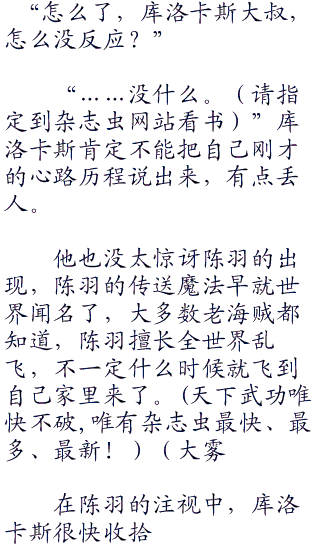 “怎么了，库洛卡斯大叔，
怎么没反应？”
“……没什么。（请指
定到杂志虫网站看书）”库
洛卡斯肯定不能把自己刚才
的心路历程说出来，有点丢
人。
他也没太惊讶陈羽的出
现，陈羽的传送魔法早就世
界闻名了，大多数老海贼都
知道，陈羽擅长全世界乱
飞，不一定什么时候就飞到
自己家里来了。(天下武功唯
快不破,唯有杂志虫最快、最
多、最新！）（大雾
在陈羽的注视中，库洛
卡斯很快收拾